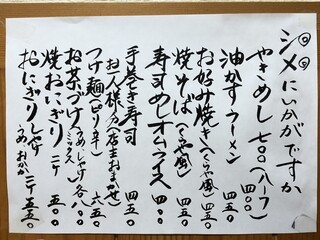 シメにいかがですか
やきめし 七〇〇 (ハーフ) 四〇〇
油かすラーメン 四五〇
お好み焼き(くらや風) 四五〇
焼そば(くらや風) 四五〇
寿司めしオムライス 八五〇
手巻き寿司 四五〇
お一人様分(店主おまかせ)
つけ麺(ピリ辛) 六五〇
お茶づけ(うめ、しゃけ)各 八〇〇
ミックス
焼おにぎり 二ケ 四五〇
おにぎり しゃけ 二ケ 五五〇
うめ おかか